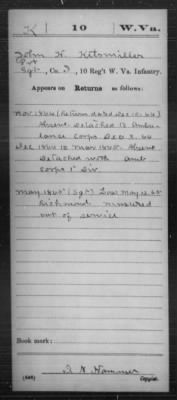 K | 10 | W.Va.
John H. Kitsmiller
Pvt
Sgt., Co. I, 10 Reg't W. Va. Infantry.
Appears on Returns as follows:
Nov 1864 (Return dated Dec 10.64)
Absent Detached to Ambu-
lance Corps Dec 3, 64
Dec 1864 to Mar 1865. Absent
Detached with amb
corps 1" Div
May 1865 (Sgt) Loss May 12 65
Richmond mustered
out of service
Book mark:
Copyist.